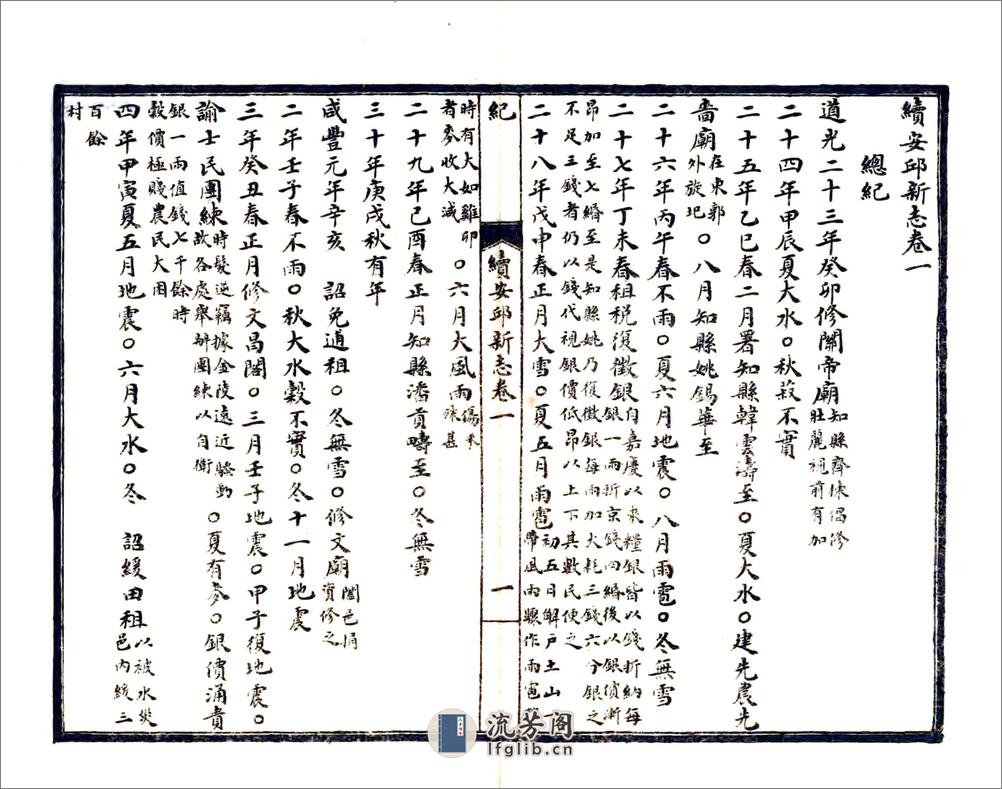 續安邱新志卷一
總紀
道光二十三年癸卯修關帝廟知縣齊㨂倡修壯麗視前有加
二十四年甲辰夏大水○秋菽不實
二十五年乙巳春二月署知縣韓雲濤至○夏大水○建先農先
嗇廟在東郭外旋圮○八月知縣姚錫華至
二十六年丙午春不雨○夏六月地震○八月雨雹○冬無雪
二十七年丁未春租稅復徵銀自嘉慶以來糧銀皆以錢折納每銀一兩折京錢四緡後以銀價漸
昂加至七緡至是知縣姚乃復徵銀每兩加火耗三錢六分銀之不足三錢者仍以錢代視銀價低昂以上下其數民便之
二十八年戊申春正月大雪○夏五月雨雹初五日解戶土山一帶風雨驟作雨雹
續安邱新志卷一
紀
一
時有大如雞卵者麥收大減○六月大風雨傷禾殊甚
二十九年己酉春正月知縣潘貢疇至○冬無雪
三十年庚戌秋有年
咸豐元年辛亥 詔免逋租○冬無雪○修文廟闔邑捐資修之
二年壬子春不雨○秋大水穀不實○冬十一月地震
三年癸丑春正月修文昌閣○三月壬子地震○甲子復地震○
諭士民團練時髮逆竄據金陵遠近騷動故各處舉辦團練以自衛○夏有麥○銀價涌貴
銀一兩值錢七千餘時穀價極賤農民大困
四年甲寅夏五月地震○六月大水○冬 詔緩田租以被水災邑內緩三
百餘村
流芳阁
lfglib.cn